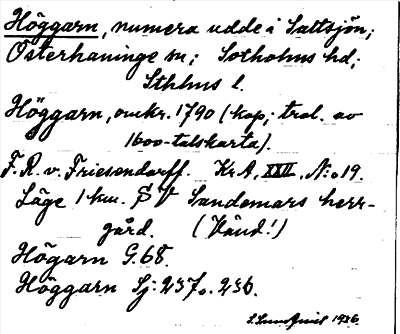 Höggarn, numera udde i Saltsjön;
Österhaninge sn; Sotholms hd;
Sthlms l.
Höggarn, omkr. 1790 (kop. trol. av
1600-talskarta).
F. R. v. Friesendorff. Kr A, XXII, N:o 19.
Läge 1 km. S V Sandemars herr-
gård. (Vänd!)
Högarn G. 68.
Höggarn Sj: 237 o. 236.
1936.